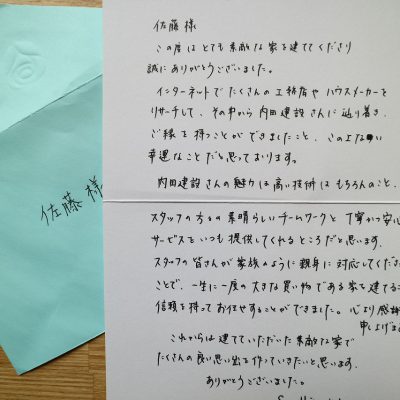 佐藤様
佐藤様
この度はとても素敵な家を建ててくださり
誠にありがとうございました。
インターネットでたくさんの工務店やハウスメーカーを
リサーチして、その中から内田建設さんに辿り着き、
ご縁を持つことができましたこと、このよな
幸運なことだと思っております。
内田建設さんの魅力は高い技術はもちろんのこと、
スタッフの方々の素晴らしいチームワークと丁寧かつ安心
サービスをいつも提供してくれるところだと思います。
スタッフの皆さんが家族のように親身に対応してくださ
ことで、一生に一度の大きな買い物である家を建てるこ
信頼を持ってお任せすることができました。心より感謝
申しあげま
これからは建てていただいた素敵な家で
たくさんの良い思い出を作っていきたいと思います。
ありがとうございました。